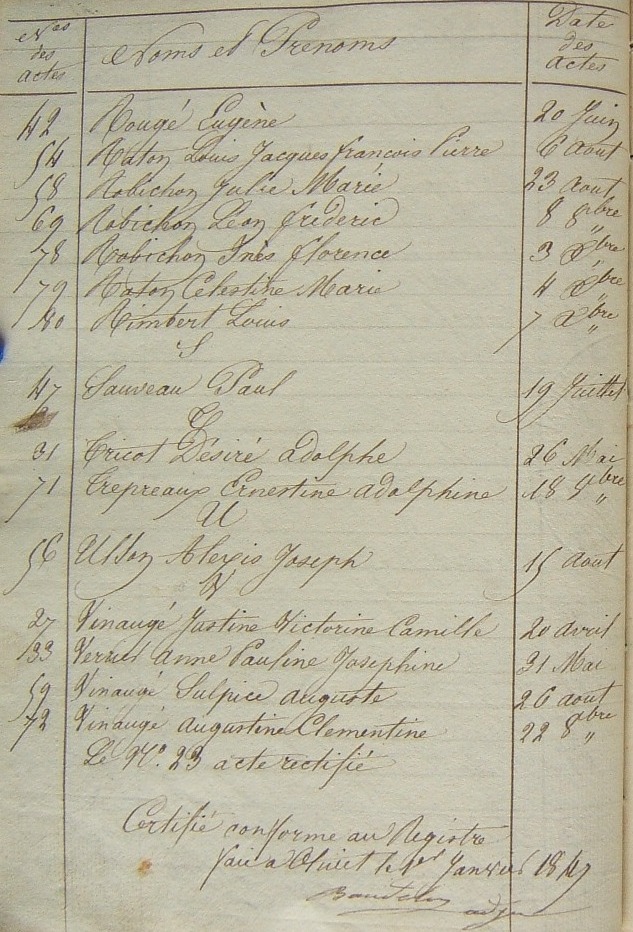 Nos des actes Noms et Prénoms Date des actes
42 Rougé Eugène 20 Juin
54 Raton Louis Jacques françois Pierre 6 aout
58 Robichon Julie Marie 23 aout
69 Robichon Léon frédéric 8 8bre
78 Robichon Inès florence 3 Xbre "
79 Raton Célestine Marie 4 Xbre "
80 Rimbert Louis 7 Xbre "
S
47 Sauveau Paul 19 Juillet
T
31 Tricot Désiré adolphe 26 Mai
71 Trepreaux Ernestine adolphine 18 9bre "
U
56 Ulson Alexis Joseph 15 aout
V
27 Vinaugé Justine Victorine Camille 20 avril
33 Verrier anne Pauline Josephine 31 Mai
59 Vinaugé Sulpice auguste 26 aout
72 Vinaugé augustine Clementine 22 8bre "
Le No. 23 acte rectifié
Certifié conforme au Registre
fait a Olivet le 1er Janvier 1847
adj